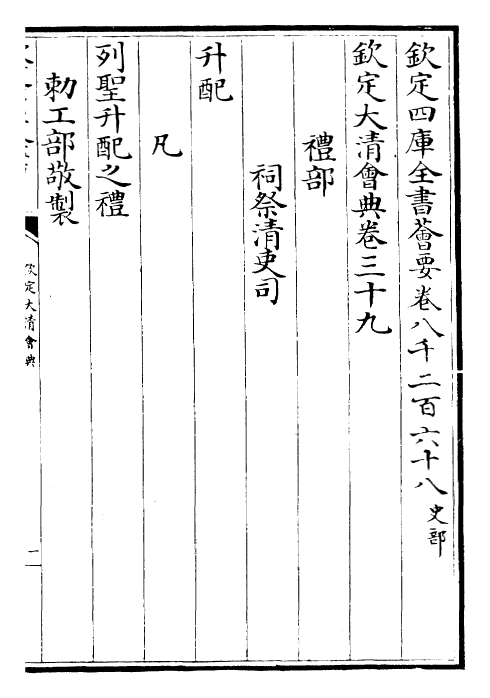 欽定四庫全書薈要卷八千二百六十八史部
欽定大清會典卷三十九
禮部
祠祭清吏司
升配
凡
列聖升配之禮
勅工部敬製
欽定大清會典